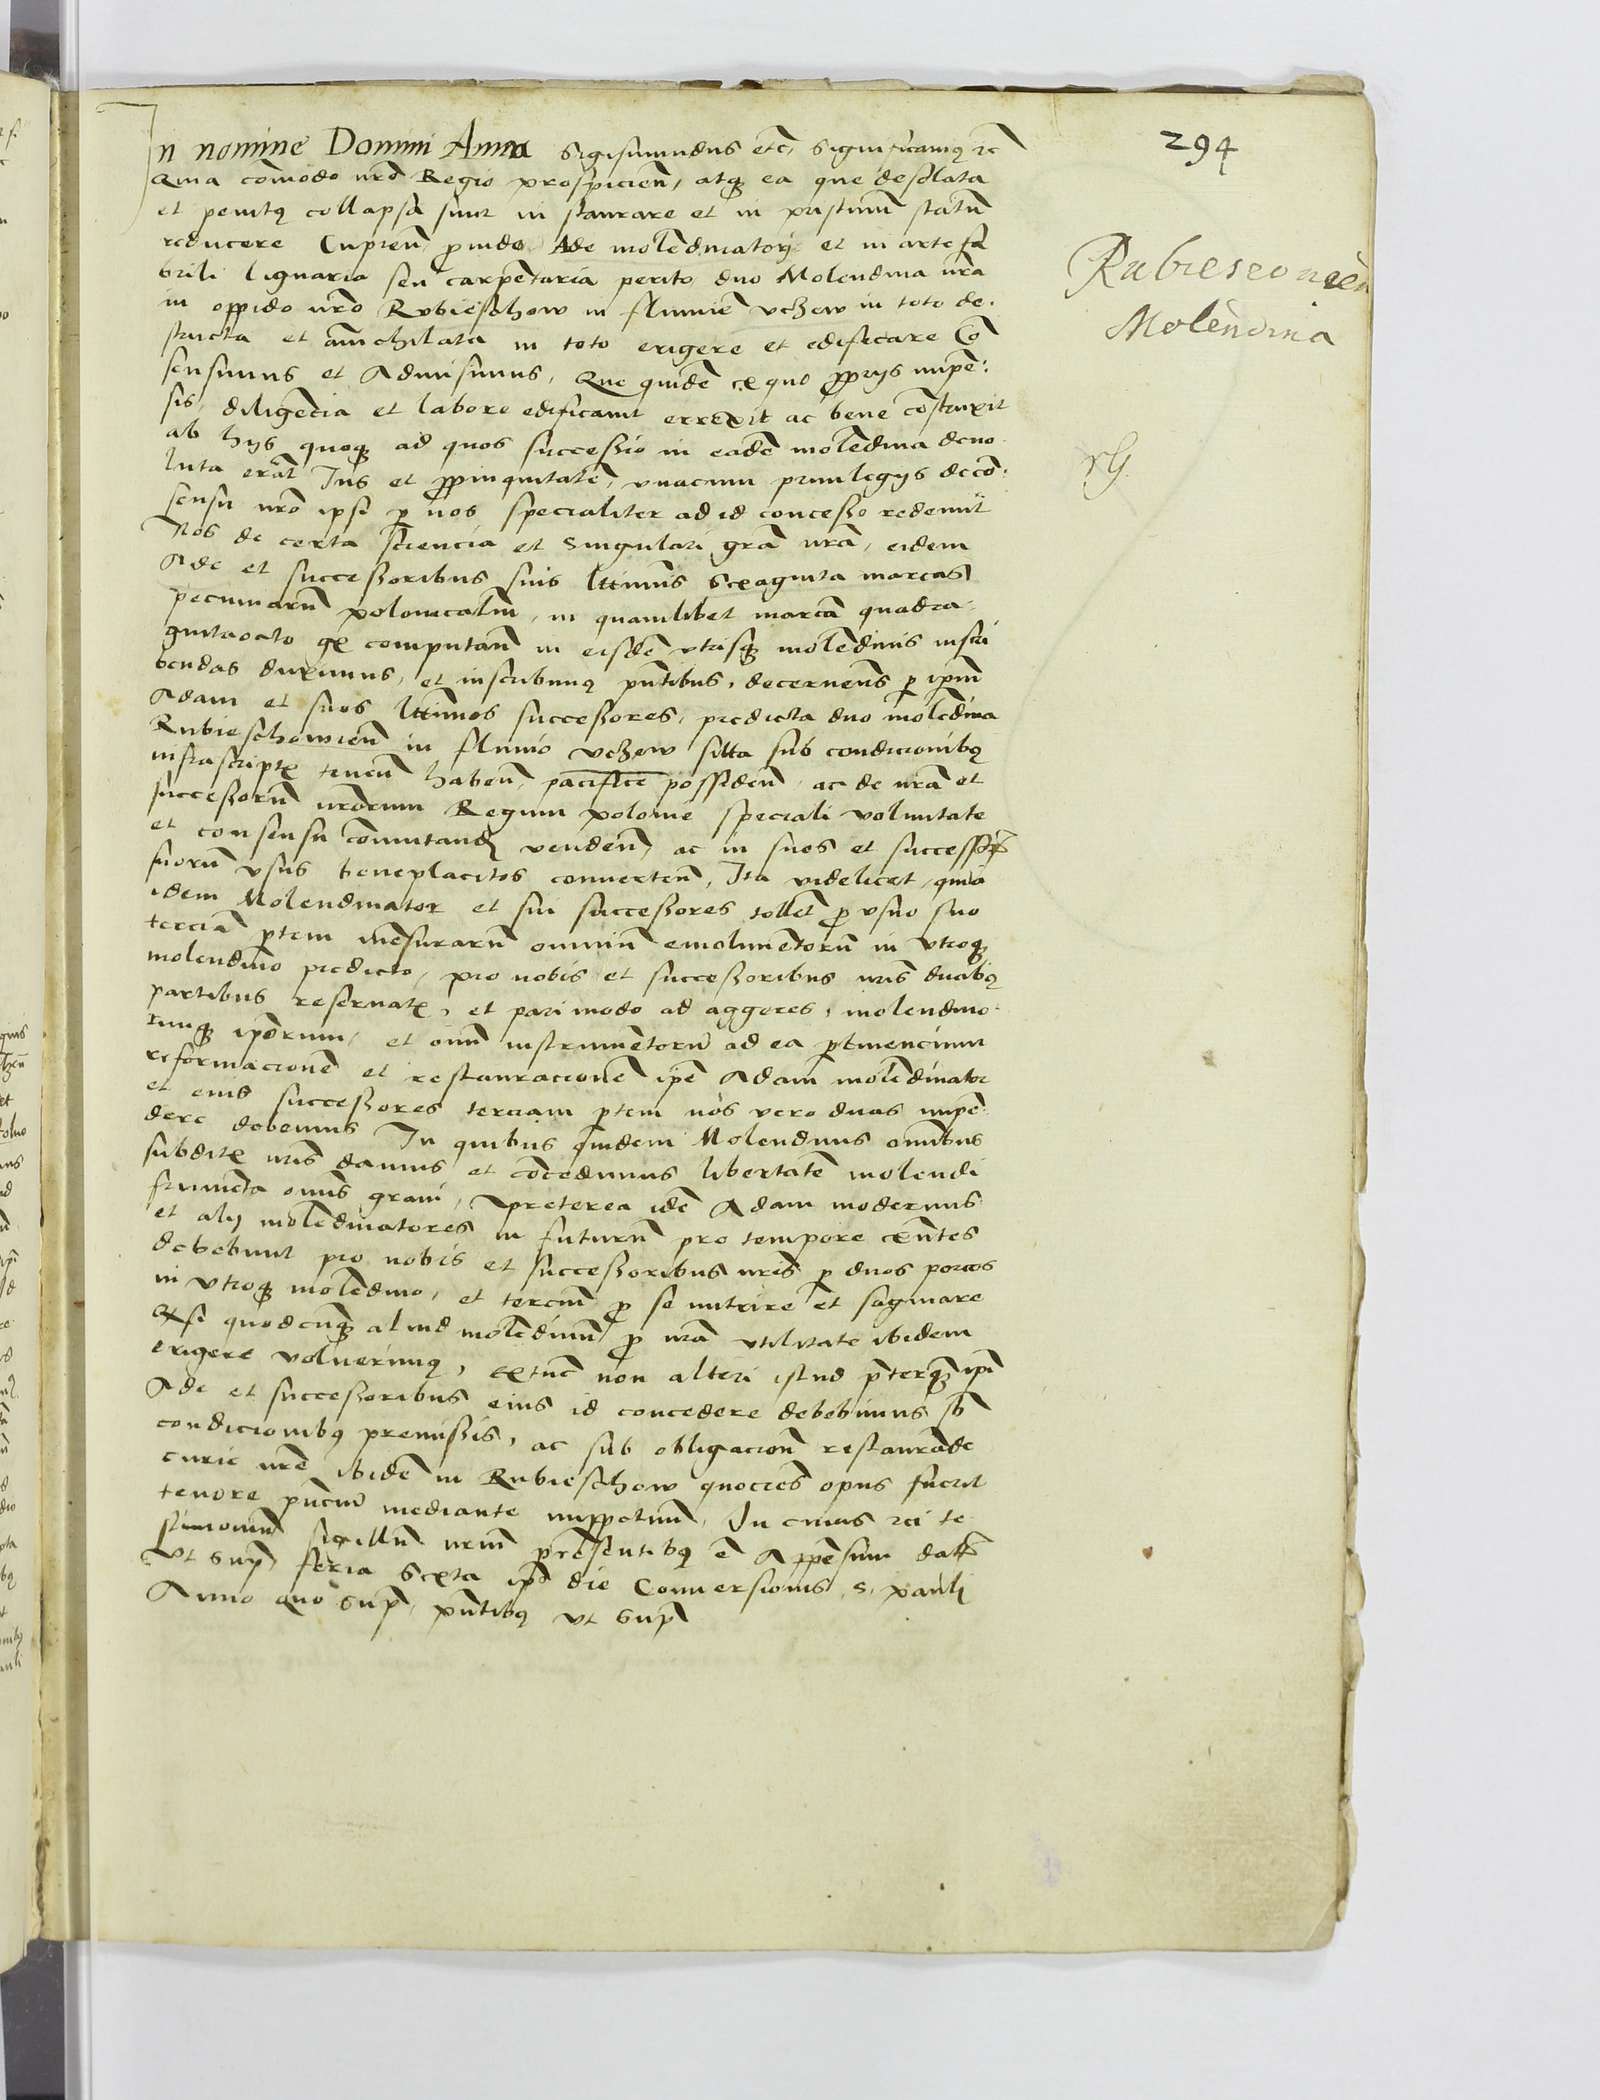 294
In nomine Domini Amen Sigismundus etc̄ Significamꝰ zc̄
Quia com̄odo nr̄o Regio prospicien̄, atqꝫ ea que desolata
et penitꝰ collapsa sunt in staurare et in pristinum statū
reducere Cupien̄, ꝓuido Ade molēdinatori et in arte fa
brili lignaria seu carpētaria perito duo Molendina nr̄a
in oppido nr̄o Rubieschow in flumie vchew in toto de-
structa et annichilata in toto erigere et edificare Cō
sensimus et Admisimus, Que quidē ex quo ꝓprijs impē:
sis, diligēcia et labore edificauit errexit ac bene cōstruxit
ab hijs quoqꝫ ad quos successio in eadē molēdina deuo
luta erāt Jus et ꝓpinquitatē, vnacum priuilegijs de cō-
sensu nr̄o ipsi ꝑ nos specialiter ad id concesso redemit
Nos de certa sciencia et singulari grā nr̄a, eidem
Ade et successoribus suis lttimis sexaginta marcas
pecuniarū polonicaliū, in quamlibet marcā quadra-
gintaocto gꝝ computan̄ in eisdē vtrisqꝫ molēdinis inscri
bendas duximus, et inscribimꝰ pn̄tibus, decernen̄s ꝑ ipm̄
Adam et suos lttimos successores, predicta duo molēdina
Rubieschowien̄ in fluuio vchew sitta sub condicionibꝰ
infrascriptꝭ tenen̄ haben̄, pacifice possiden̄ ac de nr̄a et
successorū nr̄orum Regum polonie speciali voluntate
et consensu cōmutand̄ venden̄, ac in suos et successoꝝ
suorū vsus beneplacitos conuerten̄, Ita videlicet, quia
idem Molendinator et sui successores tollēt ꝑ vsuo suo
terciā ꝑtem mēsurarū omniū emolimētorū in vtroqꝫ
molendino predicto, pro nobis et successoribus nr̄is duabꝰ
partibus reseruatꝭ, et pari modo ad aggeres, molendino-
rumqꝫ ipōrum, et oīm instrumētorū ad ea ꝑtinencium
reformacionē et restauracionē ipē Adam molēdinator
et eius successores terciam ꝑtem nos vero duas impē
dere debemus In quibus quidem Molendinis om̄ibus
subditꝭ nr̄is damus et cōcedimus libertatē molendi
frumēta om̄is grani, preterea idē Adam modernus
et alij molēdinatores in futurū pro tempore exn̄tes
debebunt pro nobis et successoribus nr̄is ꝑ duos porcos
in vtroqꝫ molēdino, et terciū ꝑ se nutrire et saginare
Etsi quodcūqꝫ aliud molēdinū ꝑ nr̄a vtilitate ibidem
erigere voluerimꝰ, extūc non alteri istud p̄terqꝫ ipī
Ade et successoribus eius id concedere debebimus sb̄
condicionibꝰ premissis, ac sub obligacion̄ restaurāde
curie nr̄e ibidē in Rubieschow quocies opus fuerit
tenore pn̄ciū mediante imppetuū, In cuius rei te
stimoniū sigillū nr̄m presentibꝰ ē Appēsum datū
Vt supͣ feria sexta ipō die Conuersionis S. pauli
Anno quo supͣ, pn̄tibꝰ vt supͣ
Rubieseovien
Molendina